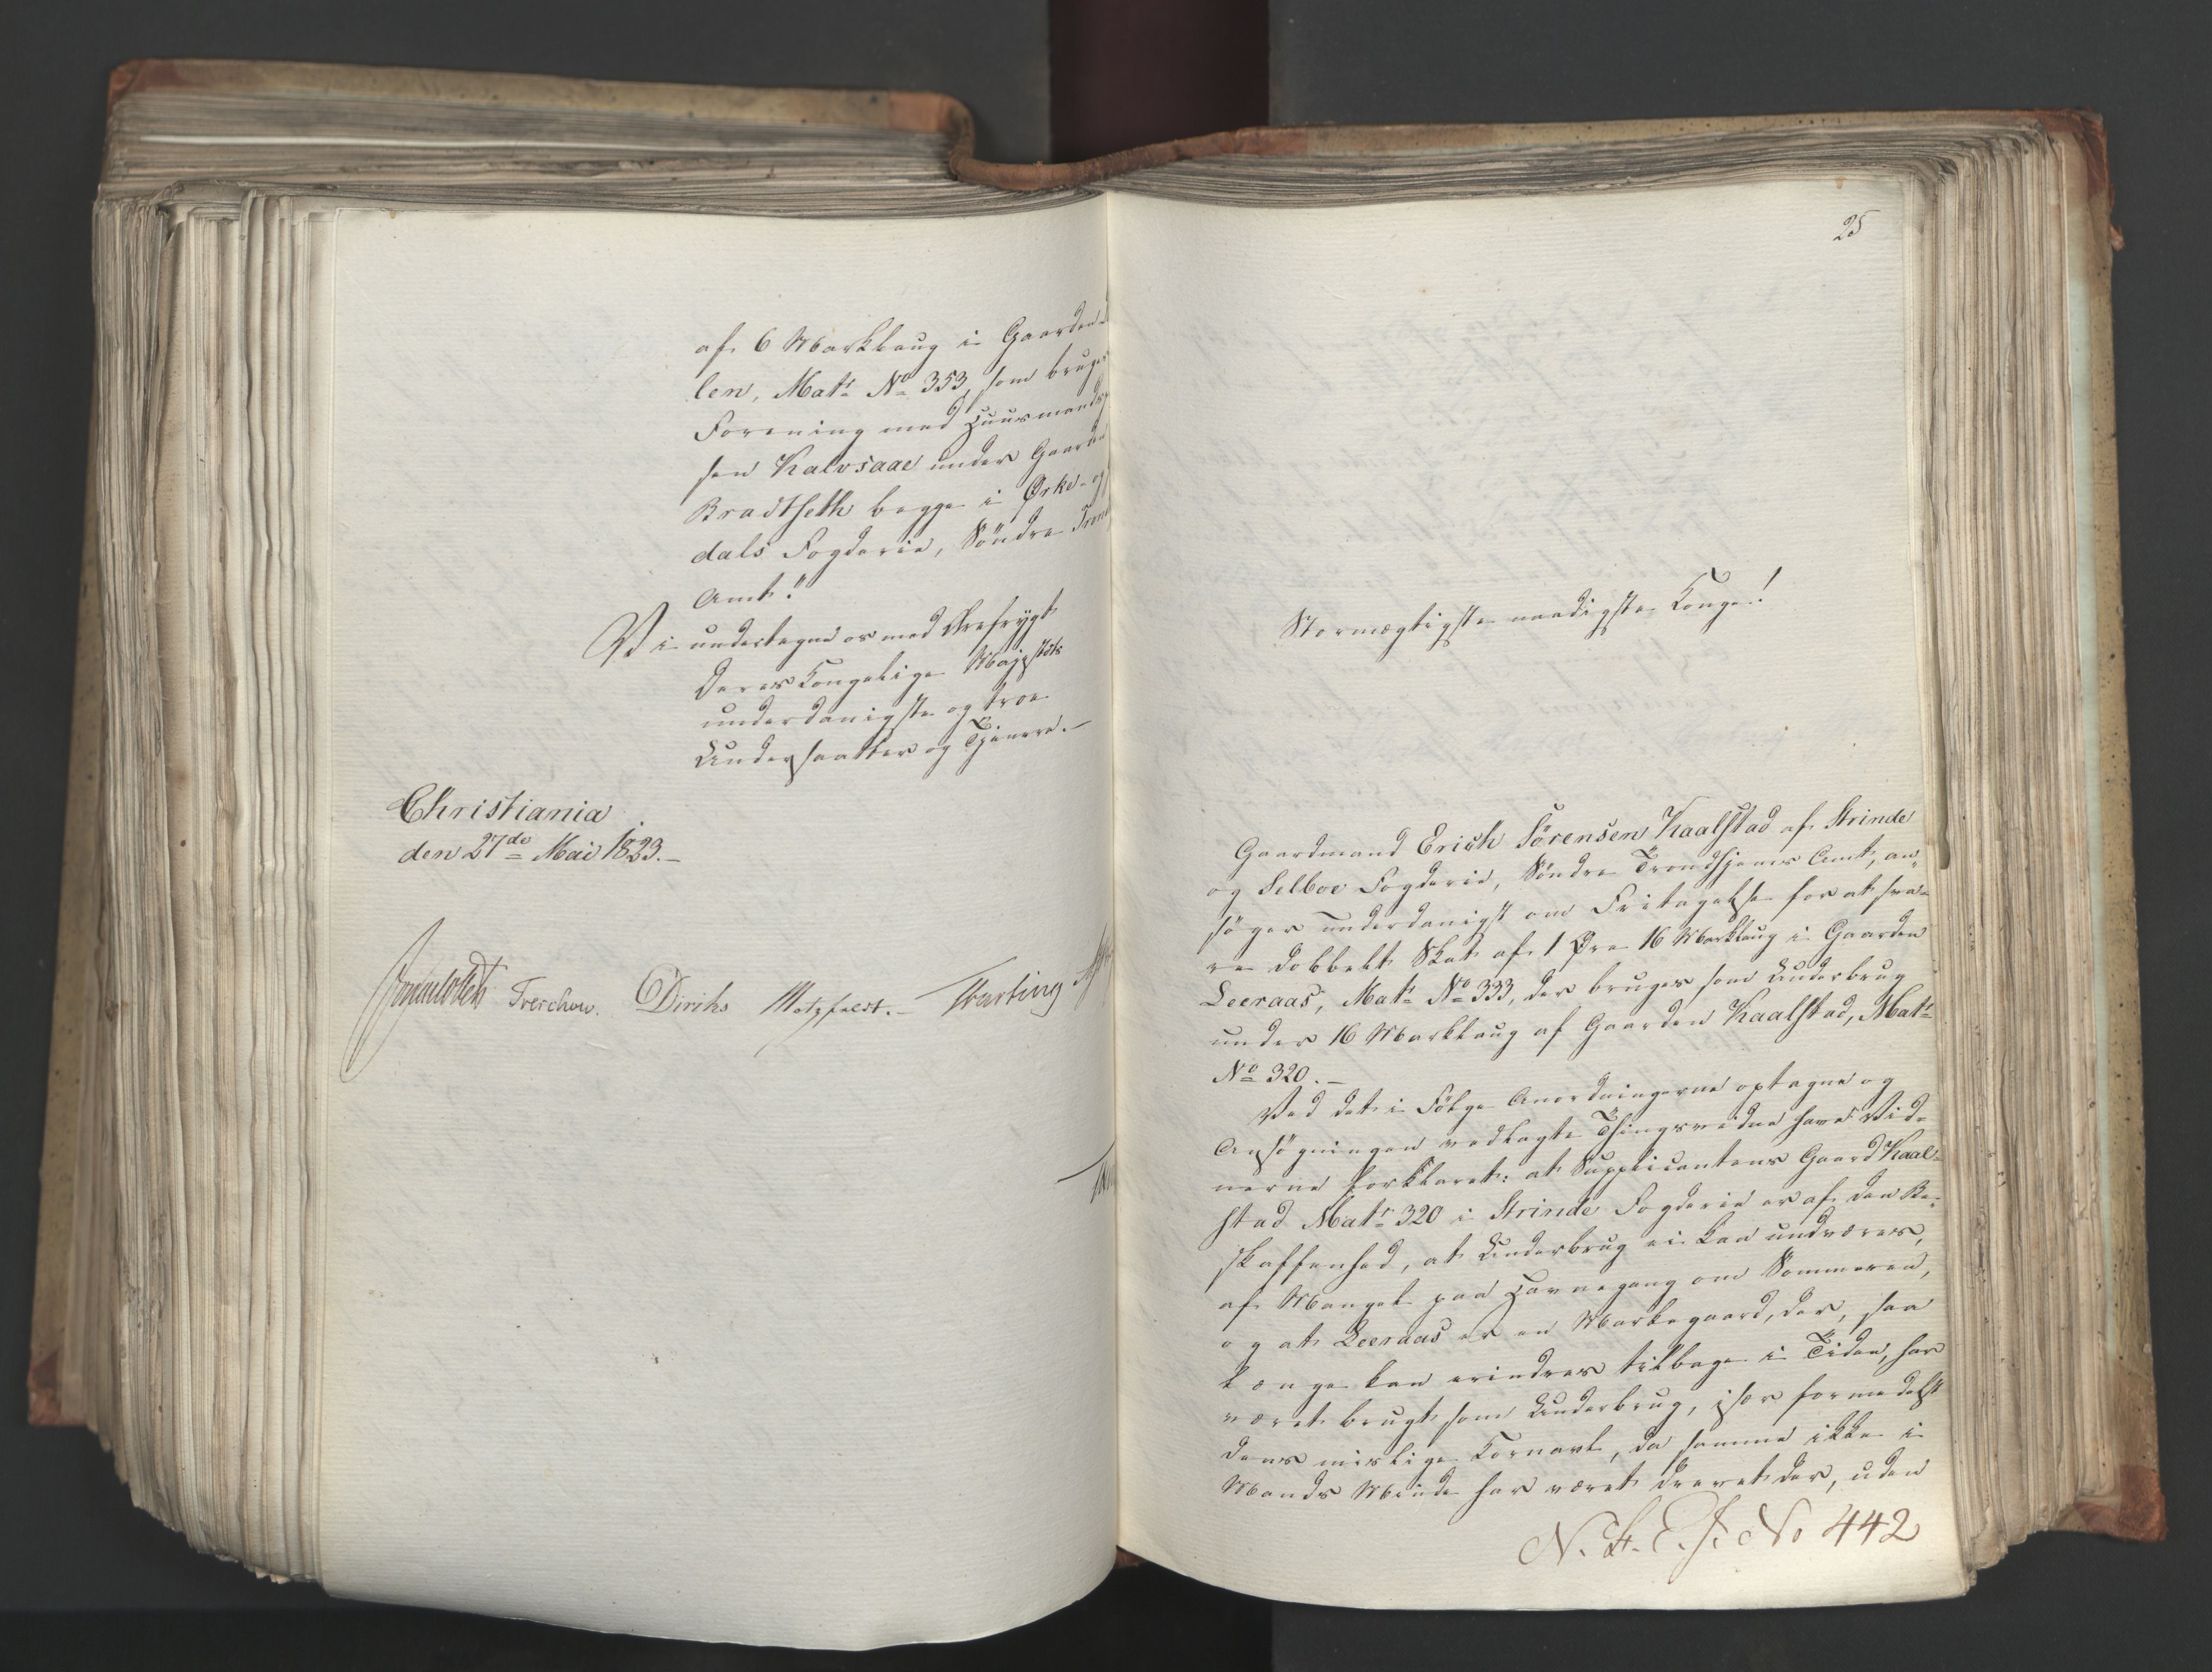 af 6 Marklaug i Gaarden
len, Matr No 353, som bruges
Forening med Huusmands
sen Kalvsaae under Gaarden
Bradtseth begge i Ørke- og
dals Fogderie, Söndre Trond
Amt."
Vi undertegne os med Ærefrygt
Deres Kongelige Majestæts
underdanigste og troe
Undersaatter og Tjenere.-
Christiania
den 27de Mai 1823.-
Treschow. Diriks Motzfeldt.-
25
Stormægtigste naadigste Konge!
Gaardmand Erich Sörensen Kaalstad af Strinde
og Selboe Fogderie, Söndre Trondhjems Amt, an-
söger underdanigst om Fritagelse for at sva-
re dobbelt Skat af 1 Øre 16 Marklaug i Gaarden
Leeraas, Matr No 333, der bruges som Underbrug
under 16 Marklaug af Gaarden Kaalstad, Matr
No 320.-
Ved det i Fölge Anordningerne optagne og
Ansögningen vedlagte Thingsvidne have Vid-
nerne forklaret: at Supplicantens Gaard Kaal-
stad Matr 320 i Strinde Fogderie er af den Be-
skaffenhed, at Underbrug ei kan undværes,
af Mangel paa Havnegang om Sommeren,
og at Leeraas er en Markegaard, der, saa
længe kan erindres tilbage i Tiden, har
været brugt som Underbrug, især formedelst
dens mislige Kornavl, da samme ikke i
Mands Minde har været drevet der, uden
N. R. C. J. No 442